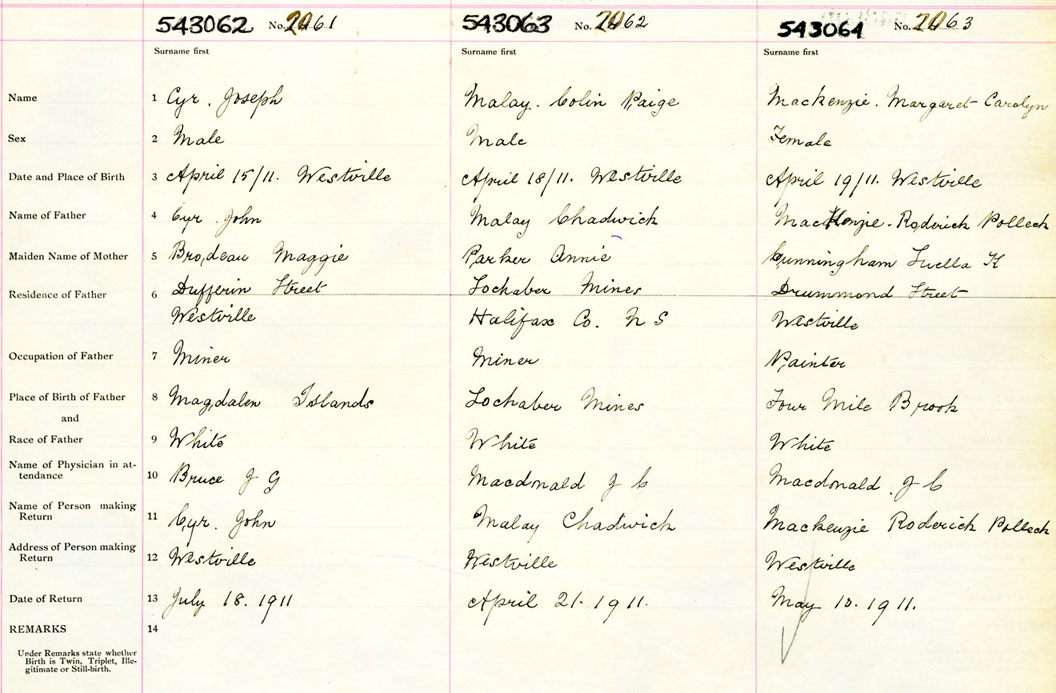 543062 No. 2061 543063 No. 2062 543064 No. 2063
Surname first Surname first Surname first
Name 1 Cyr. Joseph Malay. Colin Paige Mackenzie. Margaret Carolyn
Sex 2 Male Male Female
Date and Place of Birth 3 April 15/11. Westville April 18/11. Westville April 19/11. Westville
Name of Father 4 Cyr. John Malay Chadwick MacKenzie. Roderick Polleck
Maiden Name of Mother 5 Brodeau Maggie Parker Annie Cunningham Luella K
Residence of Father 6 Dufferin Street Lochaber Mines Drummond Street
Westville Halifax Co. N S Westville
Occupation of Father 7 Miner Miner Painter
Place of Birth of Father 8 Magdalen Islands Lochaber Mines Four Mile Brook
and
Race of Father 9 White White White
Name of Physician in at-
tendance 10 Bruce J G Macdnald J C Macdonald. J C
Name of Person making
Return 11 Cyr. John Malay Chadwick Mackenzie Roderick Polleck
Address of Person making
Return 12 Westville Westville Westville
Date of Return 13 July 18. 1911 April 21. 1911. May 10. 1911.
REMARKS 14
Under Remarks state whether
Birth is Twin, Triplet, Ille-
gitimate or Still-birth.